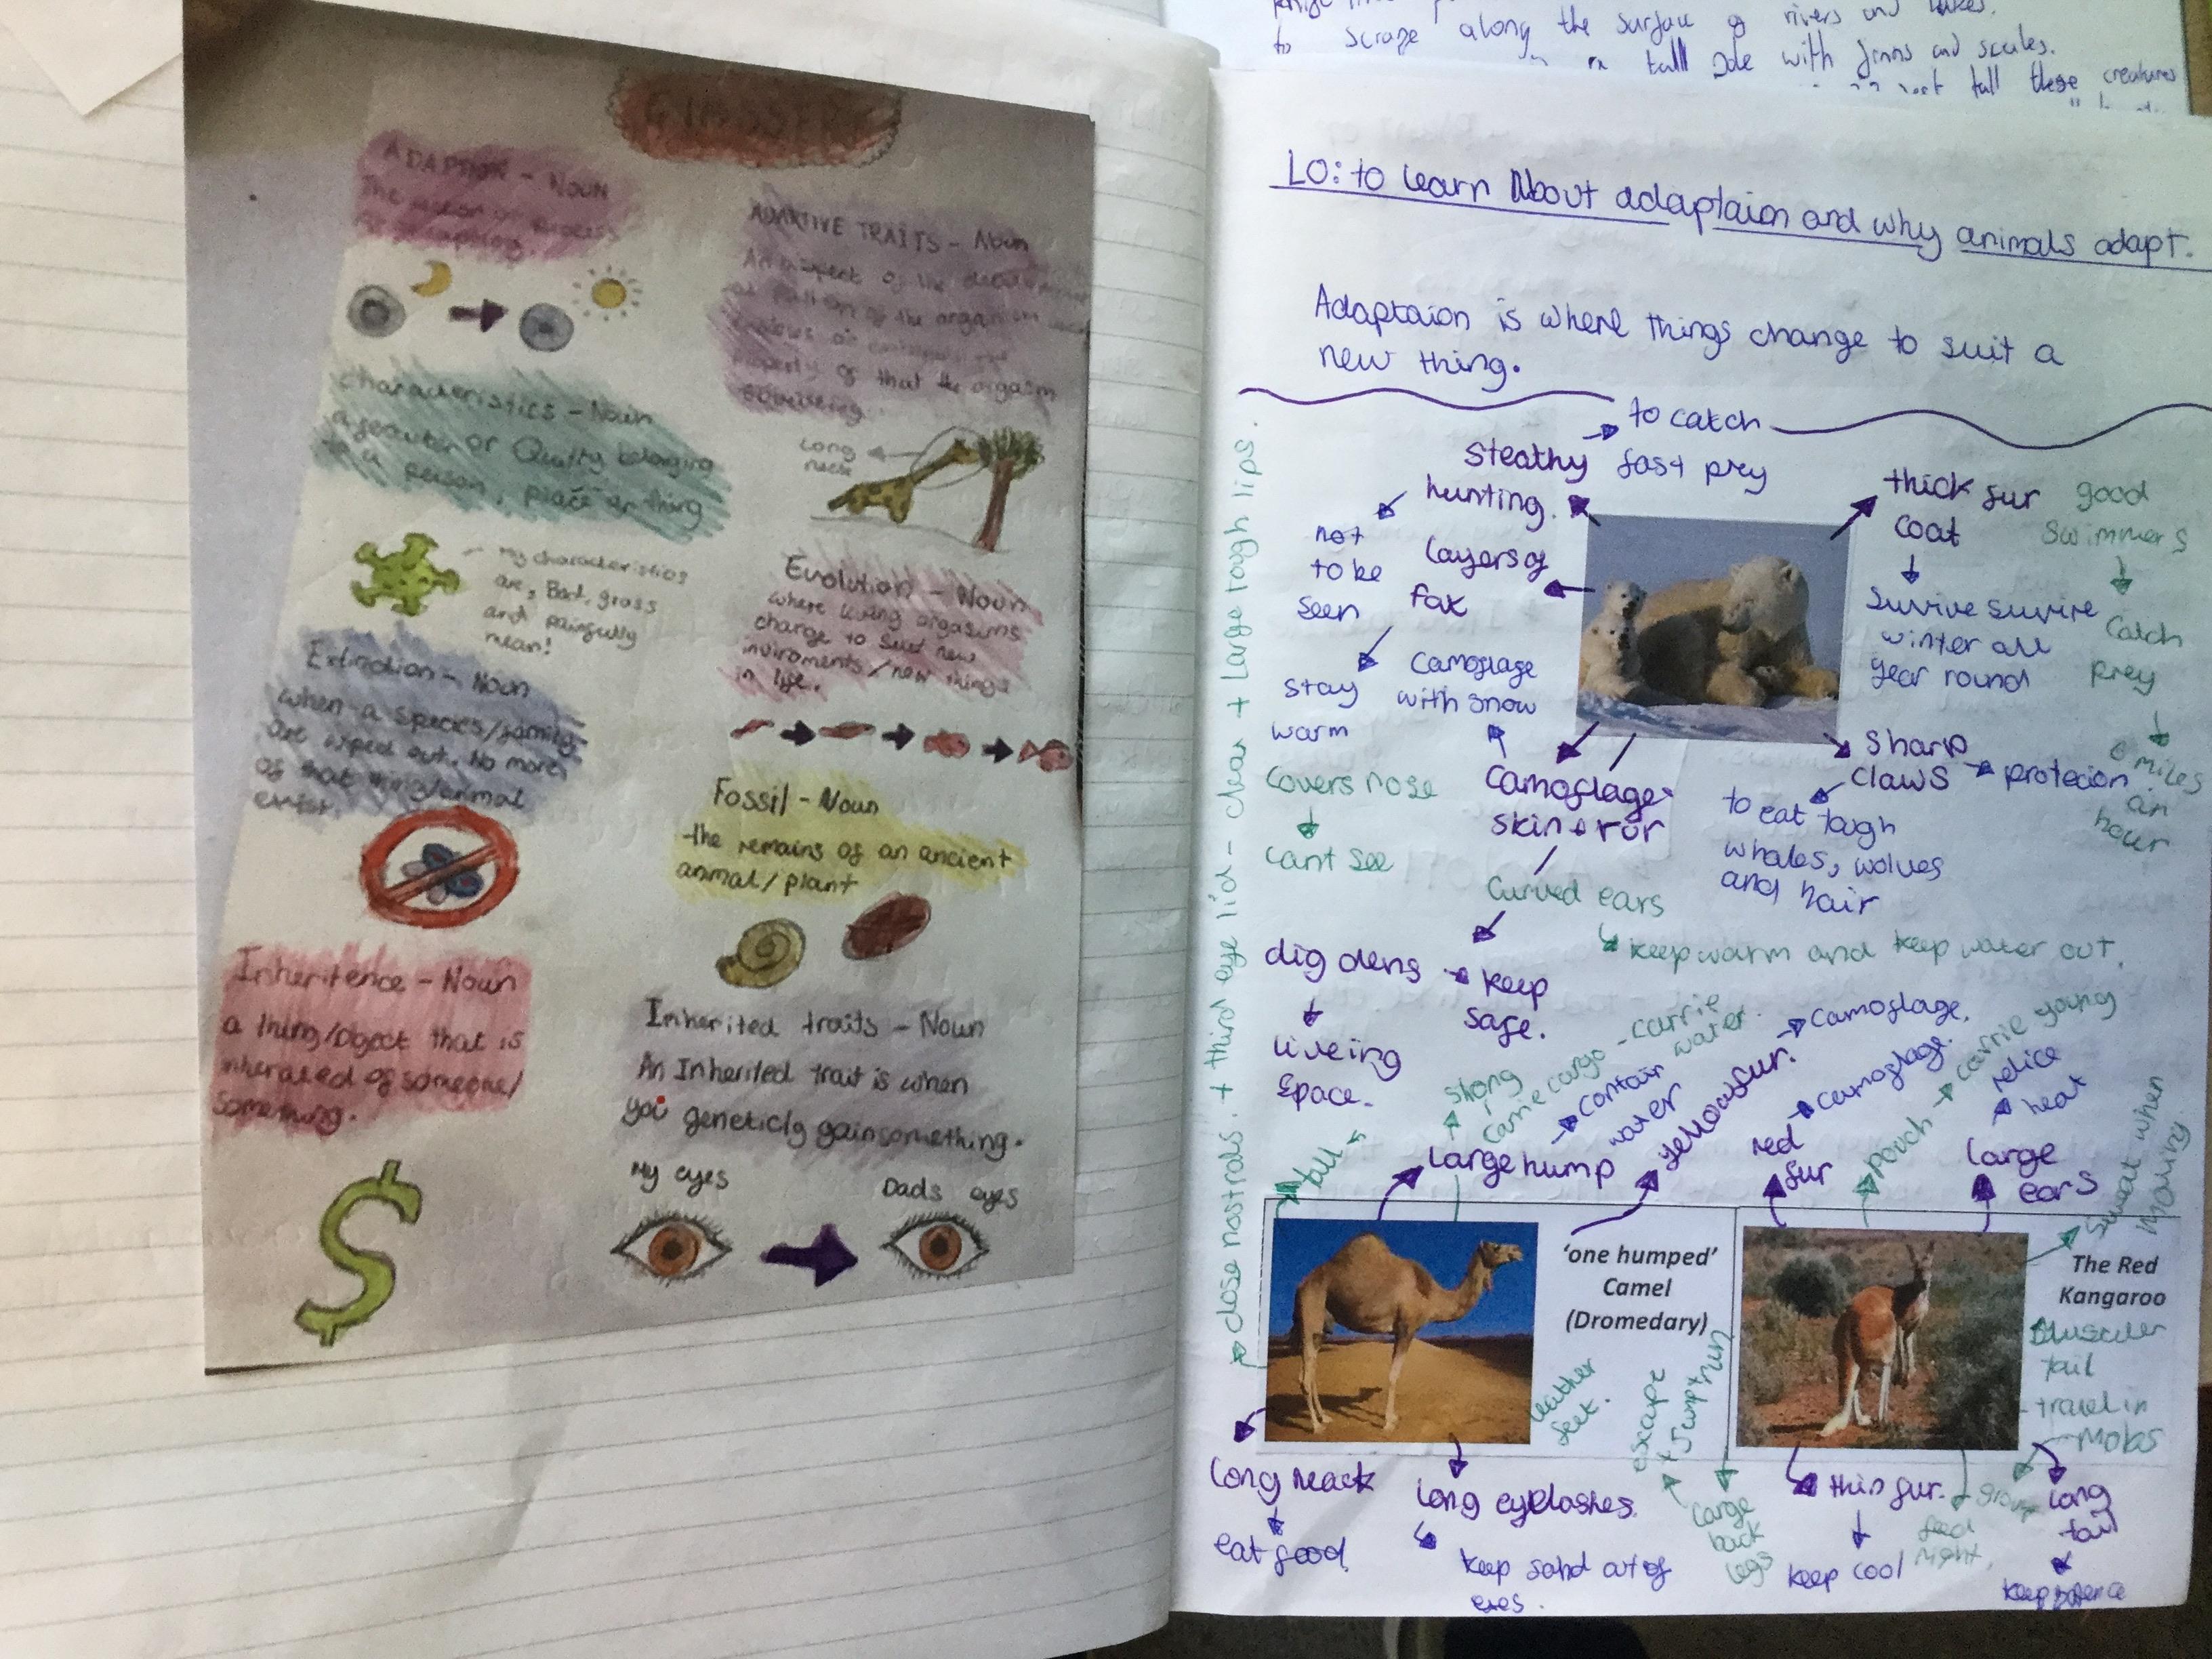 GLOSSERY
ADAPTION - NOUN
The action or process
of adapting.
Characteristics - Noun
or Quality belonging
to a person, place or thing
My characteristics
are, Bad, gross
and painfully
mean!
Extinction - Noun
when a species/family
are wiped out. No more
of that thing/animal
exist.
Inheritence - Noun
a thing/object that is
inherated of someone/
something.
ADAPTIVE TRAITS - Noun
An aspect of the
of the organism
of that the orgasm
Long
neck
Evolution - Noun
where living orgasims
change to suit new
inviroments/new things
in life.
Fossil - Noun
the remains of an ancient
animal/plant
Inherited traits - Noun
An Inherited trait is when
you geneticly gain something.
My eyes
Dads eyes
to scrape along the surface of rivers and lakes.
tall side with finns and scales.
tall these creatures
LO: to learn About adaptaion and why animals adapt.
Adaptaion is where things change to suit a
new thing.
Steathy
hunting.
to catch
fast prey
not
to be
seen
layers of
fat
stay
warm
thick fur
coat
Survive survire
winter all
year round
good
swimmers
catch
prey
6 miles
an
hour
Sharp
claws
protecion
to eat tough
whales, wolves
and hair
camoflage
skin + fur
camoflage
with snow
covers nose
cant see
curved ears
keep warm and keep water out.
dig dens
keep
safe.
liveing
space.
close nostrals. + third eye lid - clear + large tough lips.
tall
Large hump
strong
carrie cargo - carrie
water.
contain
water
yellow fur.
camoflage.
red
fur
camoflage.
pouch
carrie young
large
ears
relice
heat
sweat when
moving
'one humped'
Camel
(Dromedary)
The Red
Kangaroo
Muscular
tail
travel in
Mobs
group
leather
feet.
long neack
eat food
long eyelashes.
keep sand out of
eyes.
escape
+ Jump + run
large
back
legs
thin fur.
keep cool
feed
night.
long
tail